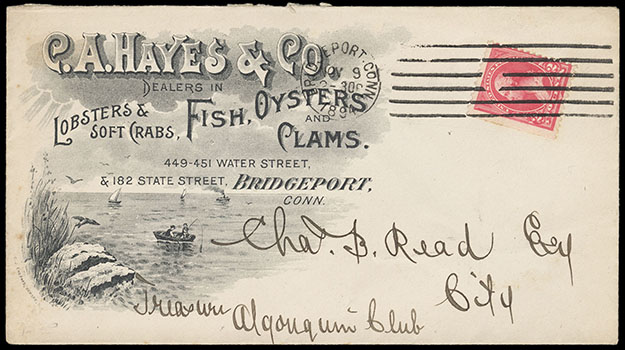 C. A. HAYES & CO.
DEALERS IN
LOBSTERS &
SOFT CRABS,
FISH, OYSTERS
AND
CLAMS.
449-451 WATER STREET,
& 182 STATE STREET, BRIDGEPORT,
CONN.
BRIDGEPORT, CONN.
NOV 9
Chas. B. Read Esq
City
Treasurer Algonquin Club